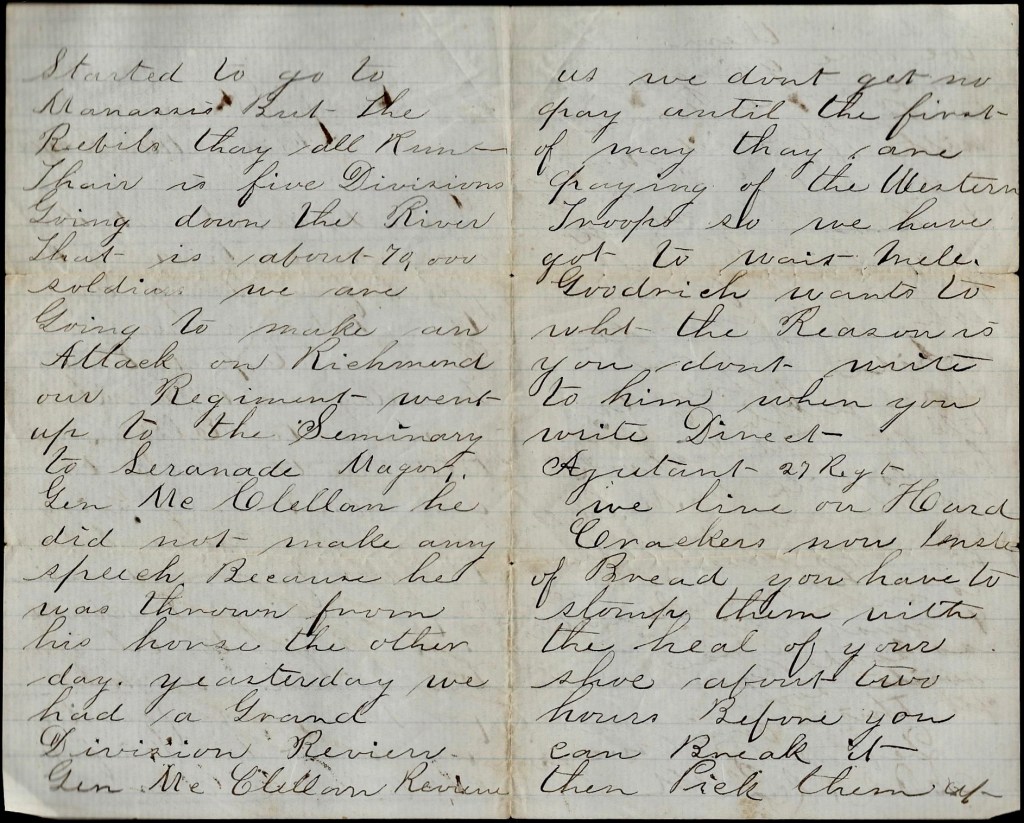 Started to go to
Manassis But the
Rebils thay all Run
Thair is five Divisions
Going down the River
That is about 70,000
soldiers we are
Going to make an
Attack on Richmond
our Regiment went
up to the Seminary
to Seranade Magor
Gen Mc Clellan he
did not make any
speech Because he
was thrown from
his horse the other
day. yeasterday we
had a Grand
Division Review
Gen Mc Clellan Review
us we dont get no
pay until the first
of may thay are
paying of the Western
Troops so we have
got to wait
Goodrich wants to
the Reason is
you dont write
to him when you
write Direct
Ajutant 27 Regt
we live on Hard
Crackers now
of Bread you have to
stomp them with
the heal of your
shoe about two
hours Before you
can Break it
then Pick them up